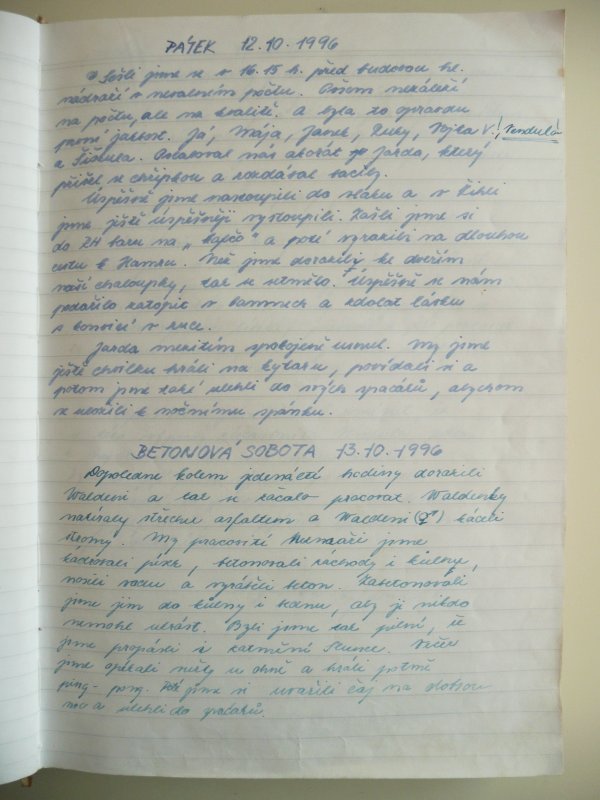 PÁTEK 12.10.1996
Sešli jsme se v 16.15 h. před budovou hl.
nádraží v nevalném počtu. Ovšem nezáleží
na počtu, ale na kvalitě. A byla to opravdu
první jakost. Já, Mája, Janek, Zuby, Vojta V.! Vendula
a Šišula. Doprovodil nás akorát Jarda, který
přišel s chřipkou a rozdával bacily.
Úspěšně jsme nastoupili do vlaku a v
jsme ještě úspěšněji vystoupili. Zašli jsme si
do ZH baru na „ kapčo " a poté vyrazili na dlouhou
cestu k Hamru. Než jsme dorazili ke dveřím
naší chaloupky, tak se setmělo. Úspěšně se nám
podařilo zatopit v kamnech a zdolat lávku
s konvicí v ruce.
Jarda mezitím spokojeně usnul. My jsme
ještě chvilku hráli na kytaru, povídali si a
potom jsme také ulehli do svých spacáků, abychom
se uložili k nočnímu spánku.
BETONOVÁ SOBOTA 13.10.1996
Dopoledne kolem jedenácté hodiny dorazili
Waldeni a tak se začalo pracovat. Waldenky
natíraly střechu asfaltem a Waldeni (♂) káceli
stromy. My pracovití jsme
kádrovali písek, betonovali záchody i kůlnu,
nosili vodu a vyráběli beton. Zabetonovali
jsme jim do kůlny i bednu, aby ji nikdo
nemohl ukrást. Byli jsme tak pilní, že
jsme propásli i zatmění Slunce. Večer
jsme opékali u ohně a hráli
ping-pong. Pak jsme si uvařili čaj na dobrou
noc a ulehli do spacáků.